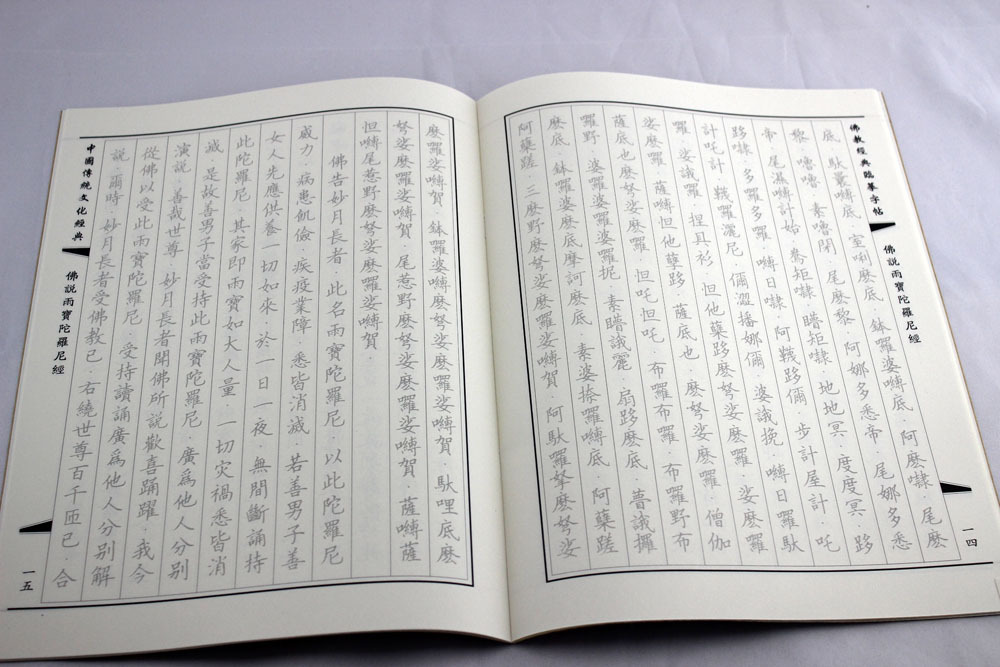 佛教經典臨摹字帖
佛説雨寶陀羅尼經
一四
底．馱曩嚩底．室唎麽底．鉢羅婆嚩底．阿麽隸．尾麽
黎．嚕嚕．素嚕閇．尾麽黎．阿娜多悉帝．尾娜多悉
帝．尾濕嚩計始．鴦矩隸．瞢矩隸．地地冥．度度冥．跢
跢隸．多羅多羅．嚩日隸．阿韈跢儞．步計屋計．吒
計吒計．韈羅灑尼．儞澀播娜儞．婆誐挽．嚩日羅馱
羅．娑誐羅．捏具衫．但他蘖跢麽努娑麽羅．娑麽羅
娑麽羅．薩嚩怛他蘖跢．薩底也．麽努娑麽羅．僧伽
薩底也麽努娑麽羅．怛吒怛吒．布羅布羅．布羅野布
羅野．婆羅婆羅抳．素瞢誐麗．扇跢麽底．瞢誐攞
麽底．鉢羅婆麽底．麽訶麽底．素婆捺羅嚩底．阿蘖蹉
阿蘖蹉．三麽野麽努娑麽羅娑嚩賀．阿馱羅拏麽努娑
麽羅娑嚩賀．鉢羅婆嚩麽努娑麽羅娑嚩賀．馱哩底麽
努娑麽羅娑嚩賀．尾惹野麽努娑麽羅娑嚩賀．薩嚩薩
怛嚩尾惹野麽努娑麽羅娑嚩賀．
佛告妙月長者．此名雨寶陀羅尼．以此陀羅尼
威力．病患飢儉．疾疫業障．悉皆消滅．若善男子善
女人先應供養一切如來．於一日一夜．無間斷誦持
此陀羅尼．其家即雨寶如大人量．一切災禍悉皆消
滅．是故善男子當受持此雨寶陀羅尼．廣爲他人分別
演説．善哉世尊．妙月長者聞佛所説歡喜踊躍．我今
從佛以受此雨寶陀羅尼．受持讀誦廣爲他人分別解
説．爾時．妙月長者受佛教已．右繞世尊百千匝已．合
中國傳統文化經典
佛説雨寶陀羅尼經
一五